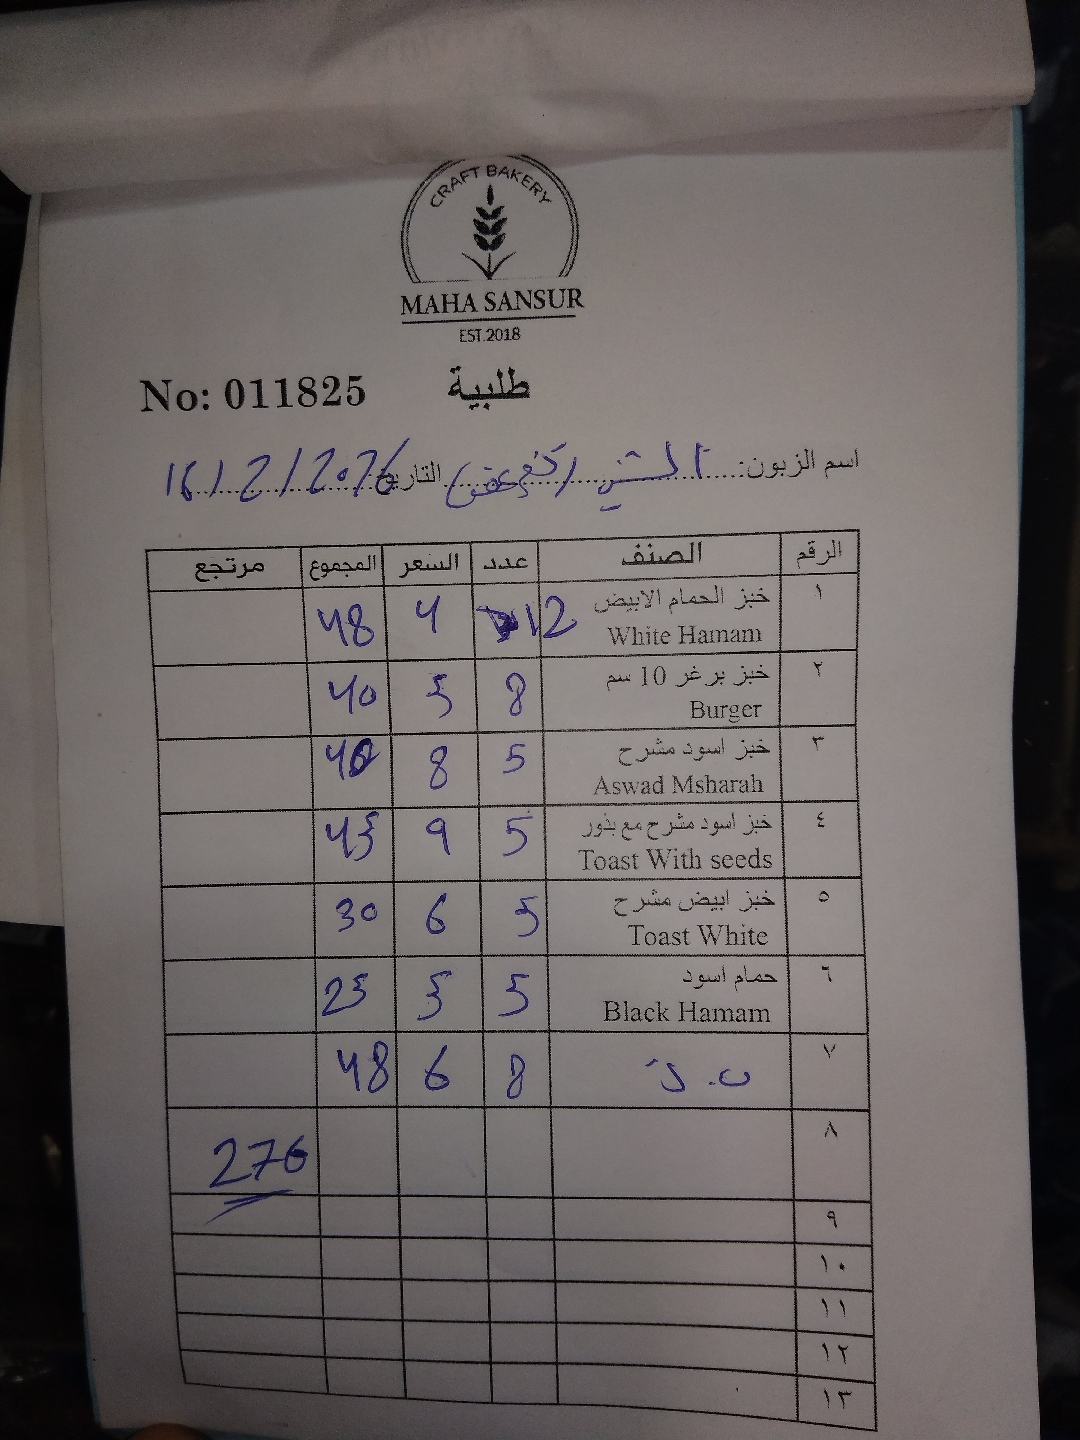 CRAFT BAKERY
MAHA SANSUR
EST.2018
No: 011825 طلبية
اسم الزبون: التاريخ 16/2/2026
الرقم الصنف عدد السعر المجموع مرتجع
١ خبز الحمام الابيض 12 4 48
White Hamam
٢ خبز برغر 10 سم 8 5 40
Burger
٣ خبز اسود مشرح 5 8 40
Aswad Msharah
٤ خبز اسود مشرح مع بذور 5 9 45
Toast With seeds
٥ خبز ابيض مشرح 5 6 30
Toast White
٦ حمام اسود 5 5 25
Black Hamam
٧ 8 6 48
٨ 276
٩
١٠
١١
١٢
١٣